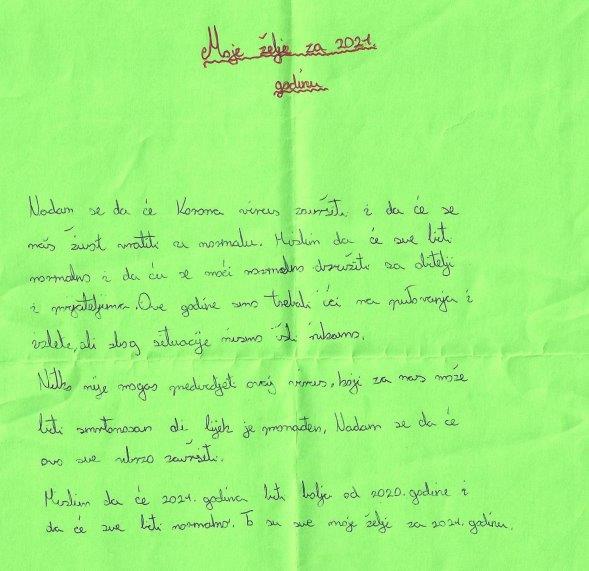 Moje želje za 2021.
godinu
Nadam se da će Korona virus završiti i da će se
naš život vratiti u normalu. Mislim da će sve biti
normalno i da ću se moći normalno družiti sa obitelji
i prijateljima. Ove godine smo trebali ići na putovanja i
izlete, ali zbog situacije nismo išli nikamo.
Nitko nije mogao predvidjeti ovaj virus, koji za nas može
biti smrtonosan ali lijek je pronađen. Nadam se da će
ovo sve ubrzo završiti.
Mislim da će 2021. godina biti bolja od 2020. godine i
da će sve biti normalno. To su sve moje želje za 2021. godinu.